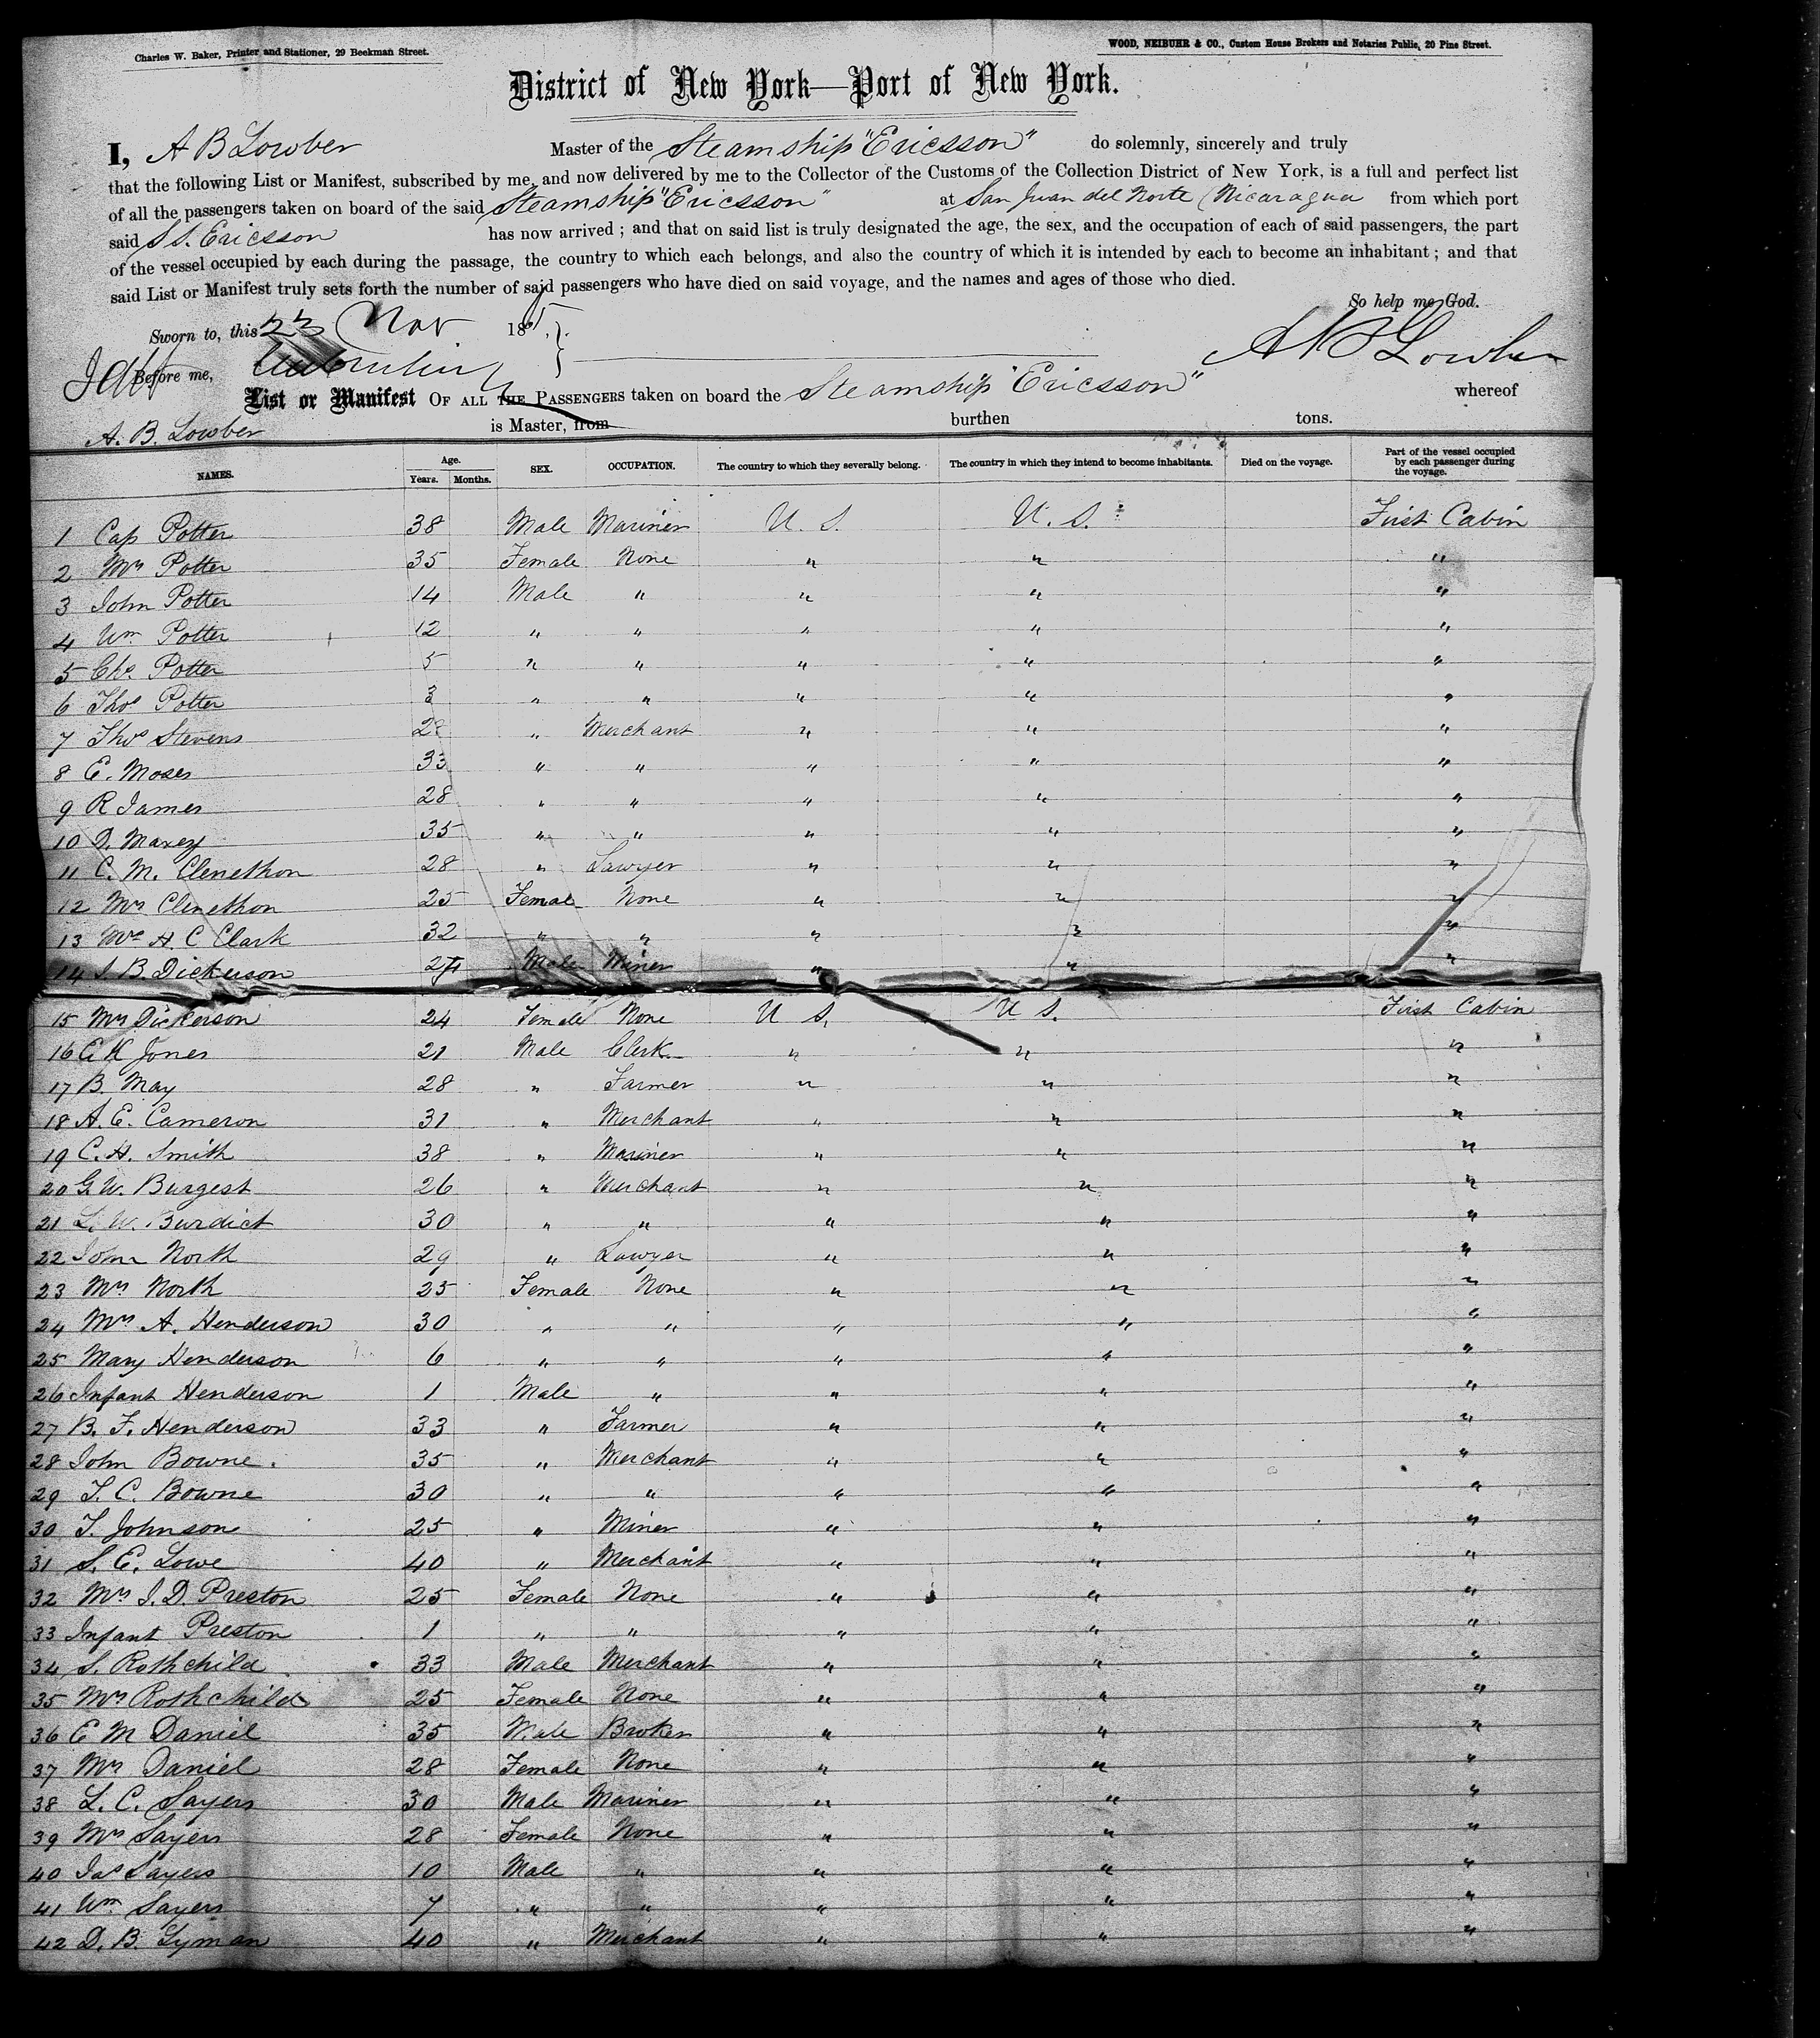 Charles W. Baker, Printer and Stationer, 29 Beekman Street.
WOOD, NEIBUHR & CO., Custom House Brokers and Notaries Public, 20 Pine Street.
District of New York—Port of New York.
I, A B Lowber Master of the Steamship "Ericsson" do solemnly, sincerely and truly
that the following List or Manifest, subscribed by me, and now delivered by me to the Collector of the Customs of the Collection District of New York, is a full and perfect list
of all the passengers taken on board of the said Steamship "Ericsson" at San Juan del Norte (Nicaragua from which port
said S S. Ericsson has now arrived ; and that on said list is truly designated the age, the sex, and the occupation of each of said passengers, the part
of the vessel occupied by each during the passage, the country to which each belongs, and also the country of which it is intended by each to become an inhabitant ; and that
said List or Manifest truly sets forth the number of said passengers who have died on said voyage, and the names and ages of those who died.
So help me God.
Sworn to, this 23 Nov 186
A B Lowber
Before me,
List or Manifest OF ALL THE PASSENGERS taken on board the Steamship "Ericsson" whereof
A. B. Lowber is Master, from burthen tons.
NAMES. Age. Years. Months. SEX. OCCUPATION. The country to which they severally belong. The country in which they intend to become inhabitants. Died on the voyage. Part of the vessel occupied by each passenger during the voyage.
1 Cap Potter 38 Male Mariner U. S. U. S. First Cabin
2 Mrs Potter 35 Female None " " "
3 John Potter 14 Male " " " "
4 Wm Potter 12 " " " " "
5 Chs Potter 5 " " " " "
6 Thos Potter 3 " " " " "
7 Thos Stevens 28 " Merchant " " "
8 E. Moses 33 " " " " "
9 R James 28 " " " " "
10 Maxey 35 " " " " "
11 C. M. Clenethon 28 " Lawyer " " "
12 Mrs Clenethon 25 Female None " " "
13 Mrs H. C Clark 32 " " " " "
14 S. B. Dickerson Male Miner " " "
15 Mrs Dickerson 24 Female None U S. U S. First Cabin
16 E K Jones 21 Male Clerk " " "
17 B. May 28 " Farmer " " "
18 A. E. Cameron 31 " Merchant " " "
19 C. H. Smith 38 " Mariner " " "
20 G. W. Burgest 26 " Merchant " " "
21 L. W. Burdict 30 " " " " "
22 John North 29 " Lawyer " " "
23 Mrs North 25 Female None " " "
24 Mrs A. Henderson 30 " " " " "
25 Mary Henderson 6 " " " " "
26 Infant Henderson 1 Male " " " "
27 B. F. Henderson 33 " Farmer " " "
28 John Bowne. 35 " Merchant " " "
29 T. C. Bowne 30 " " " " "
30 T. Johnson 25 " Miner " " "
31 S. E. Lowe 40 " Merchant " " "
32 Mrs J. D. Preston 25 Female None " " "
33 Infant Preston 1 " " " " "
34 S. Rothchild 33 Male Merchant " " "
35 Mrs Rothchild 25 Female None " " "
36 E M Daniel 35 Male Broker " " "
37 Mrs Daniel 28 Female None " " "
38 L. C. Sayers 30 Male Mariner " " "
39 Mrs Sayers 28 Female None " " "
40 Jas Sayers 10 Male " " " "
41 Wm Sayers 7 " " " " "
42 D. B. Lyman 40 " Merchant " " "